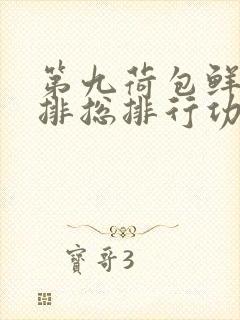 第九荷包鲜
排总排行功
寶哥3